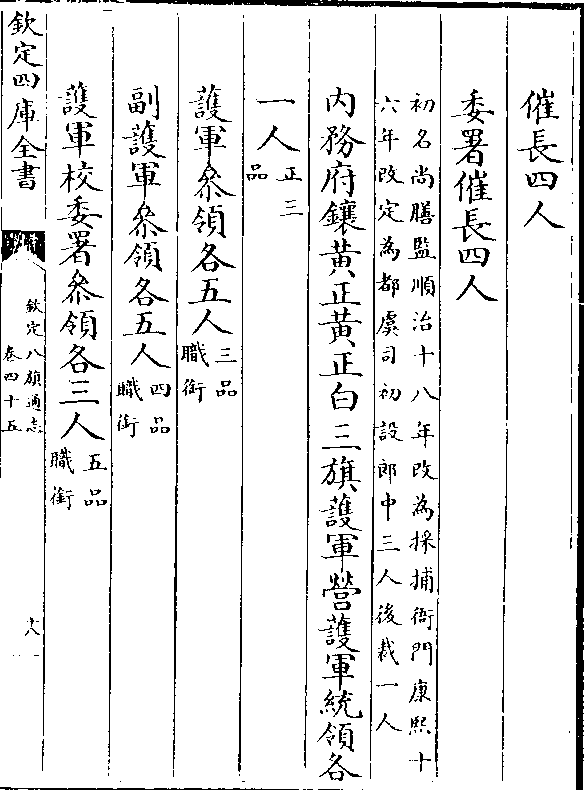 催長四人
委署催長四人
初名尚膳監順治十八年改為採捕衙門康熙十
六年改定為都虞司初設郎中三人後裁一人
內務府鑲黃正黃正白三旗護軍營護軍統領各
一人正三品
護軍叅領各五人三品職銜
副護軍叅領各五人四品職銜
護軍校委署叅領各三人五品職銜
欽定四庫全書
欽定八旗通志
卷四十五
十八